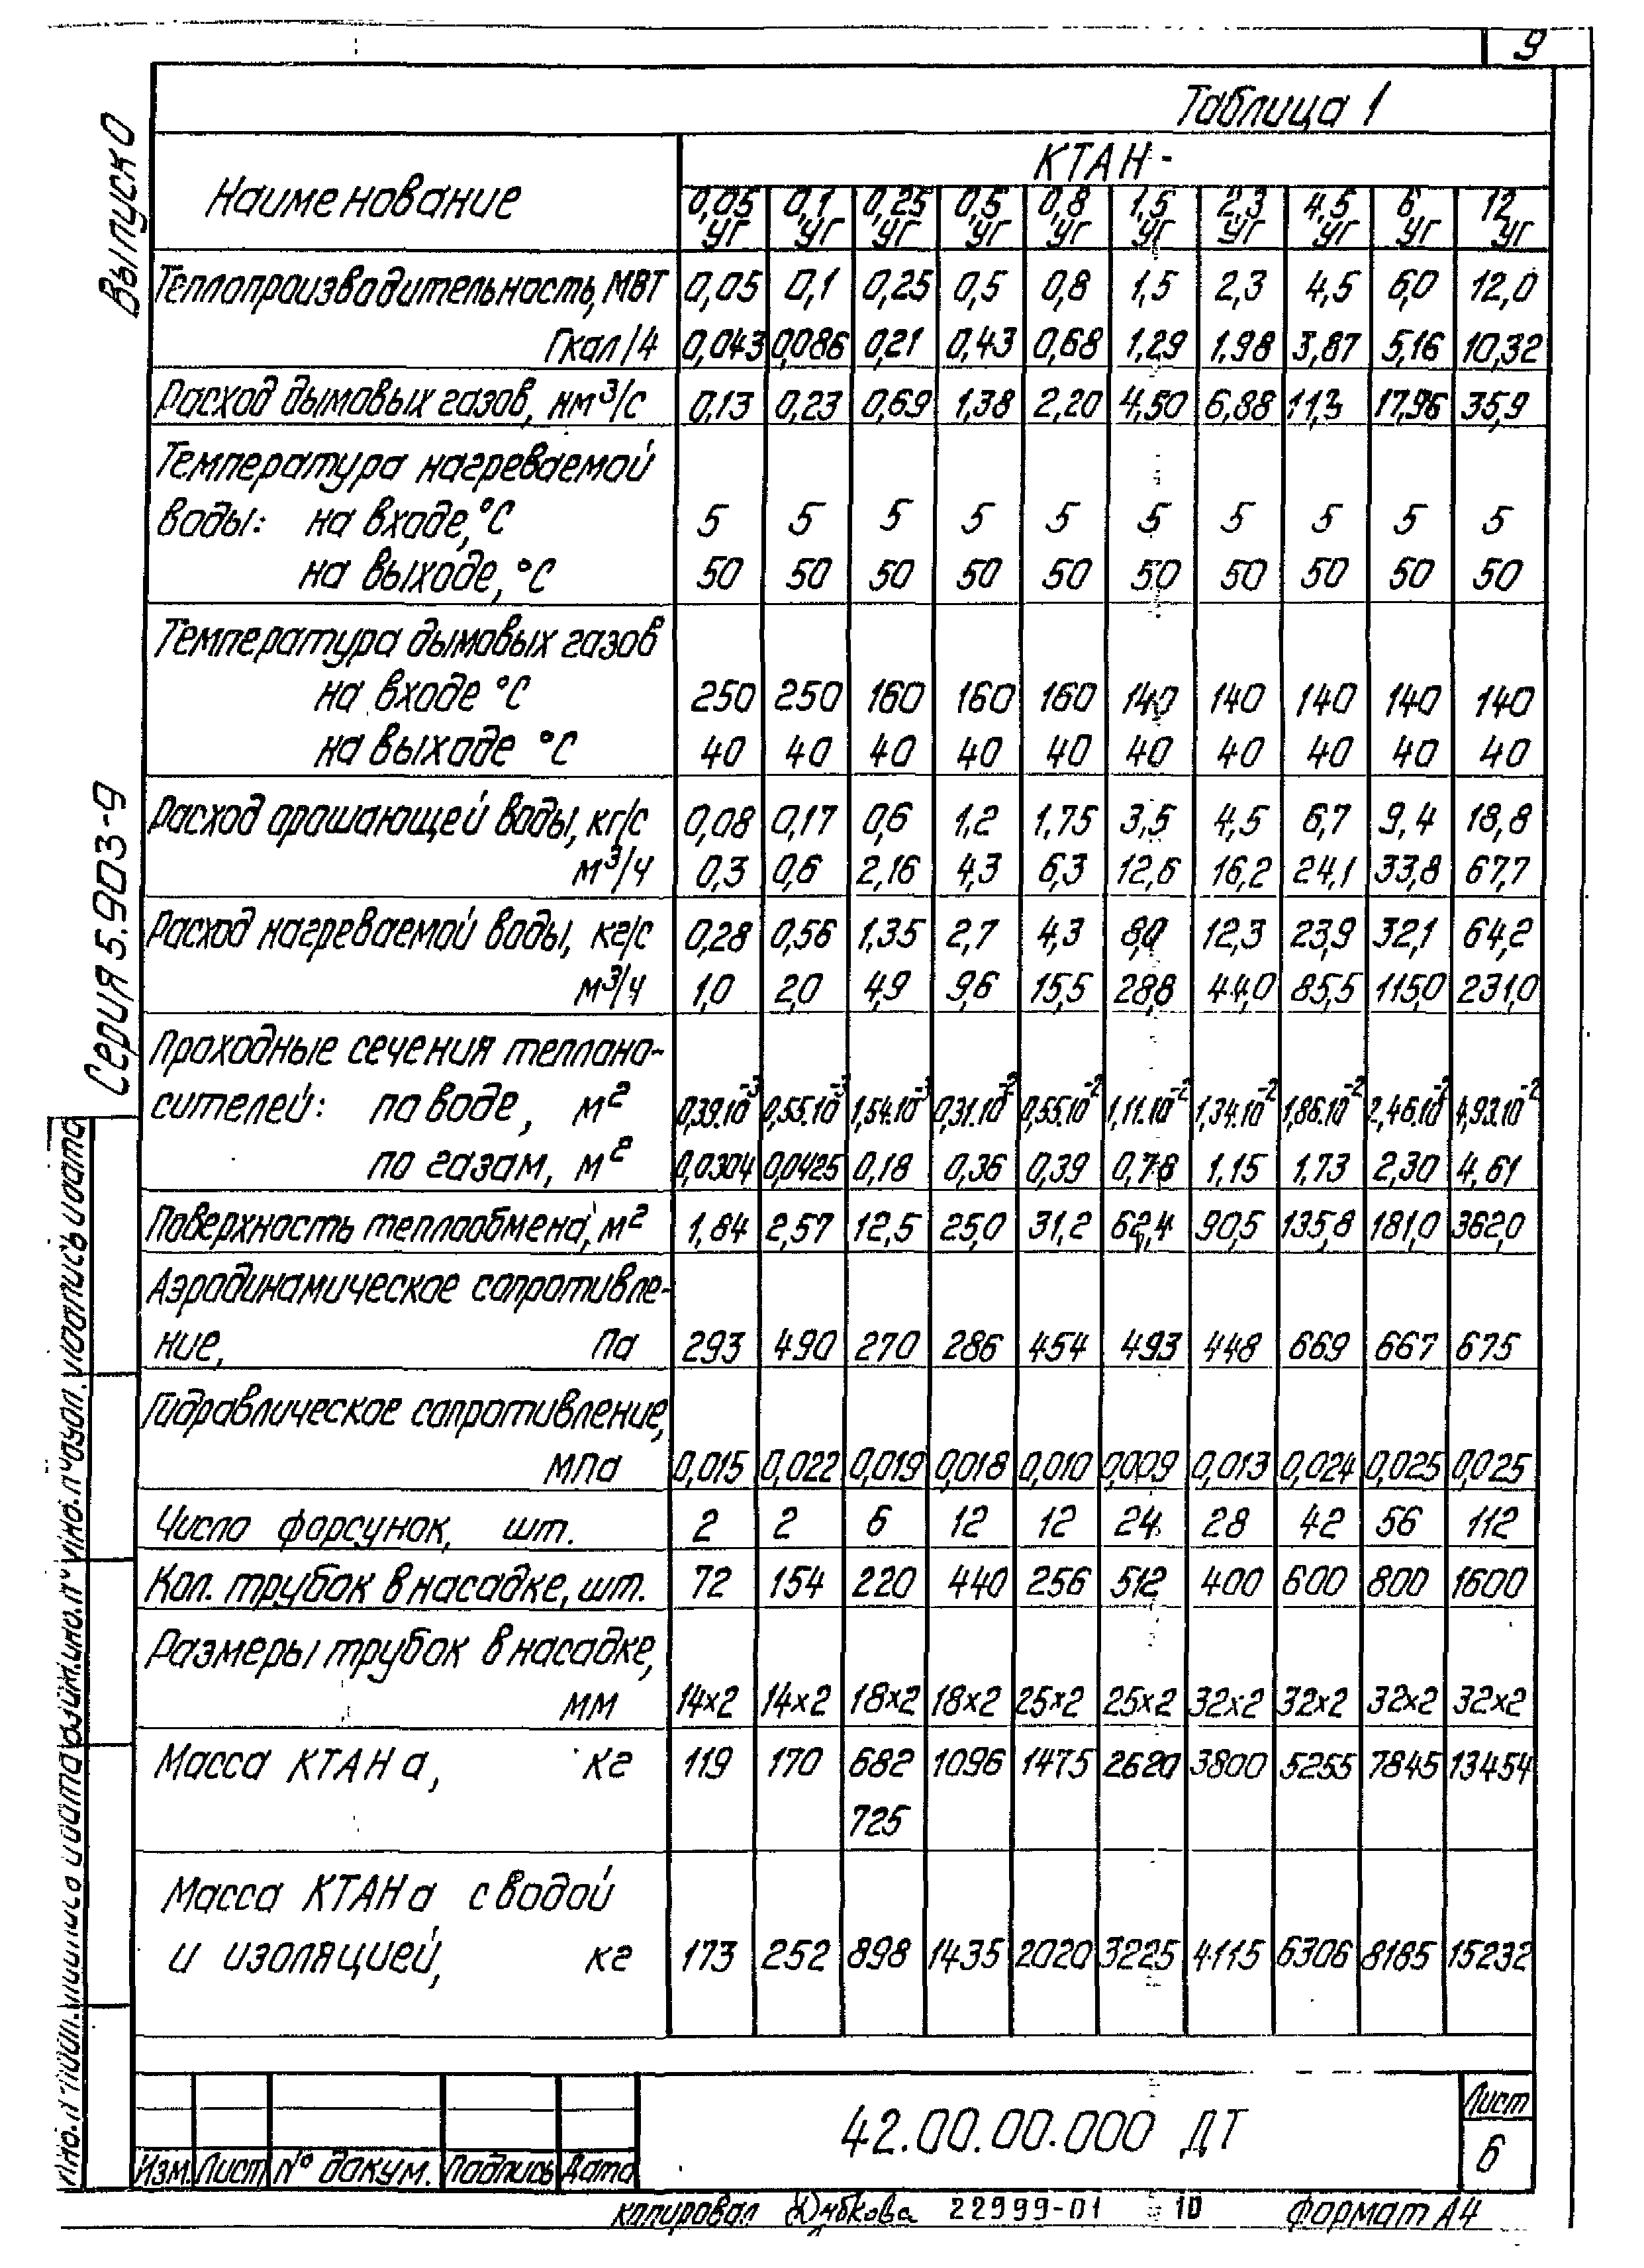 9
Таблица 1
Наименование КТАН-
0,05 УГ 0,1 УГ 0,25 УГ 0,5 УГ 0,8 УГ 1,5 УГ 2,3 УГ 4,5 УГ 6 УГ 12 УГ
Теплопроизводительность, МВТ 0,05 0,1 0,25 0,5 0,8 1,5 2,3 4,5 6,0 12,0
Гкал/ч 0,043 0,086 0,21 0,43 0,68 1,29 1,98 3,87 5,16 10,32
Расход дымовых газов, нм³/с 0,13 0,23 0,69 1,38 2,20 4,50 6,88 11,3 17,96 35,9
Температура нагреваемой
воды: на входе, °С 5 5 5 5 5 5 5 5 5 5
на выходе, °С 50 50 50 50 50 50 50 50 50 50
Температура дымовых газов
на входе °С 250 250 160 160 160 140 140 140 140 140
на выходе °С 40 40 40 40 40 40 40 40 40 40
Расход орошающей воды, кг/с 0,08 0,17 0,6 1,2 1,75 3,5 4,5 6,7 9,4 18,8
м³/ч 0,3 0,6 2,16 4,3 6,3 12,6 16,2 24,1 33,8 67,7
Расход нагреваемой воды, кг/с 0,28 0,56 1,35 2,7 4,3 8,0 12,3 23,9 32,1 64,2
м³/ч 1,0 2,0 4,9 9,6 15,5 28,8 44,0 85,5 115,0 231,0
Проходные сечения теплоно-
сителей: по воде, м² 0,39.10⁻³ 0,55.10⁻³ 1,54.10⁻³ 0,31.10⁻² 0,55.10⁻² 1,11.10⁻² 1,34.10⁻² 1,86.10⁻² 2,46.10⁻² 4,93.10⁻²
по газам, м² 0,0304 0,0425 0,18 0,36 0,39 0,78 1,15 1,73 2,30 4,61
Поверхность теплообмена, м² 1,84 2,57 12,5 25,0 31,2 62,4 90,5 135,8 181,0 362,0
Аэродинамическое сопротивле-
ние, Па 293 490 270 286 454 493 448 669 667 675
Гидравлическое сопротивление,
МПа 0,015 0,022 0,019 0,018 0,010 0,009 0,013 0,024 0,025 0,025
Число форсунок, шт. 2 2 6 12 12 24 28 42 56 112
Кол. трубок в насадке, шт. 72 154 220 440 256 512 400 600 800 1600
Размеры трубок в насадке,
мм 14×2 14×2 18×2 18×2 25×2 25×2 32×2 32×2 32×2 32×2
Масса КТАНа, кг 119 170 682 1096 1475 2620 3800 5255 7845 13454
725
Масса КТАНа с водой
и изоляцией, кг 173 252 898 1435 2020 3225 4115 6306 8165 15232
Выпуск 0
Серия 5.903-9
42.00.00.000 ДТ
Лист
6
Изм. Лист № докум. Подпись Дата
копировал 22999-01 10 формат А4